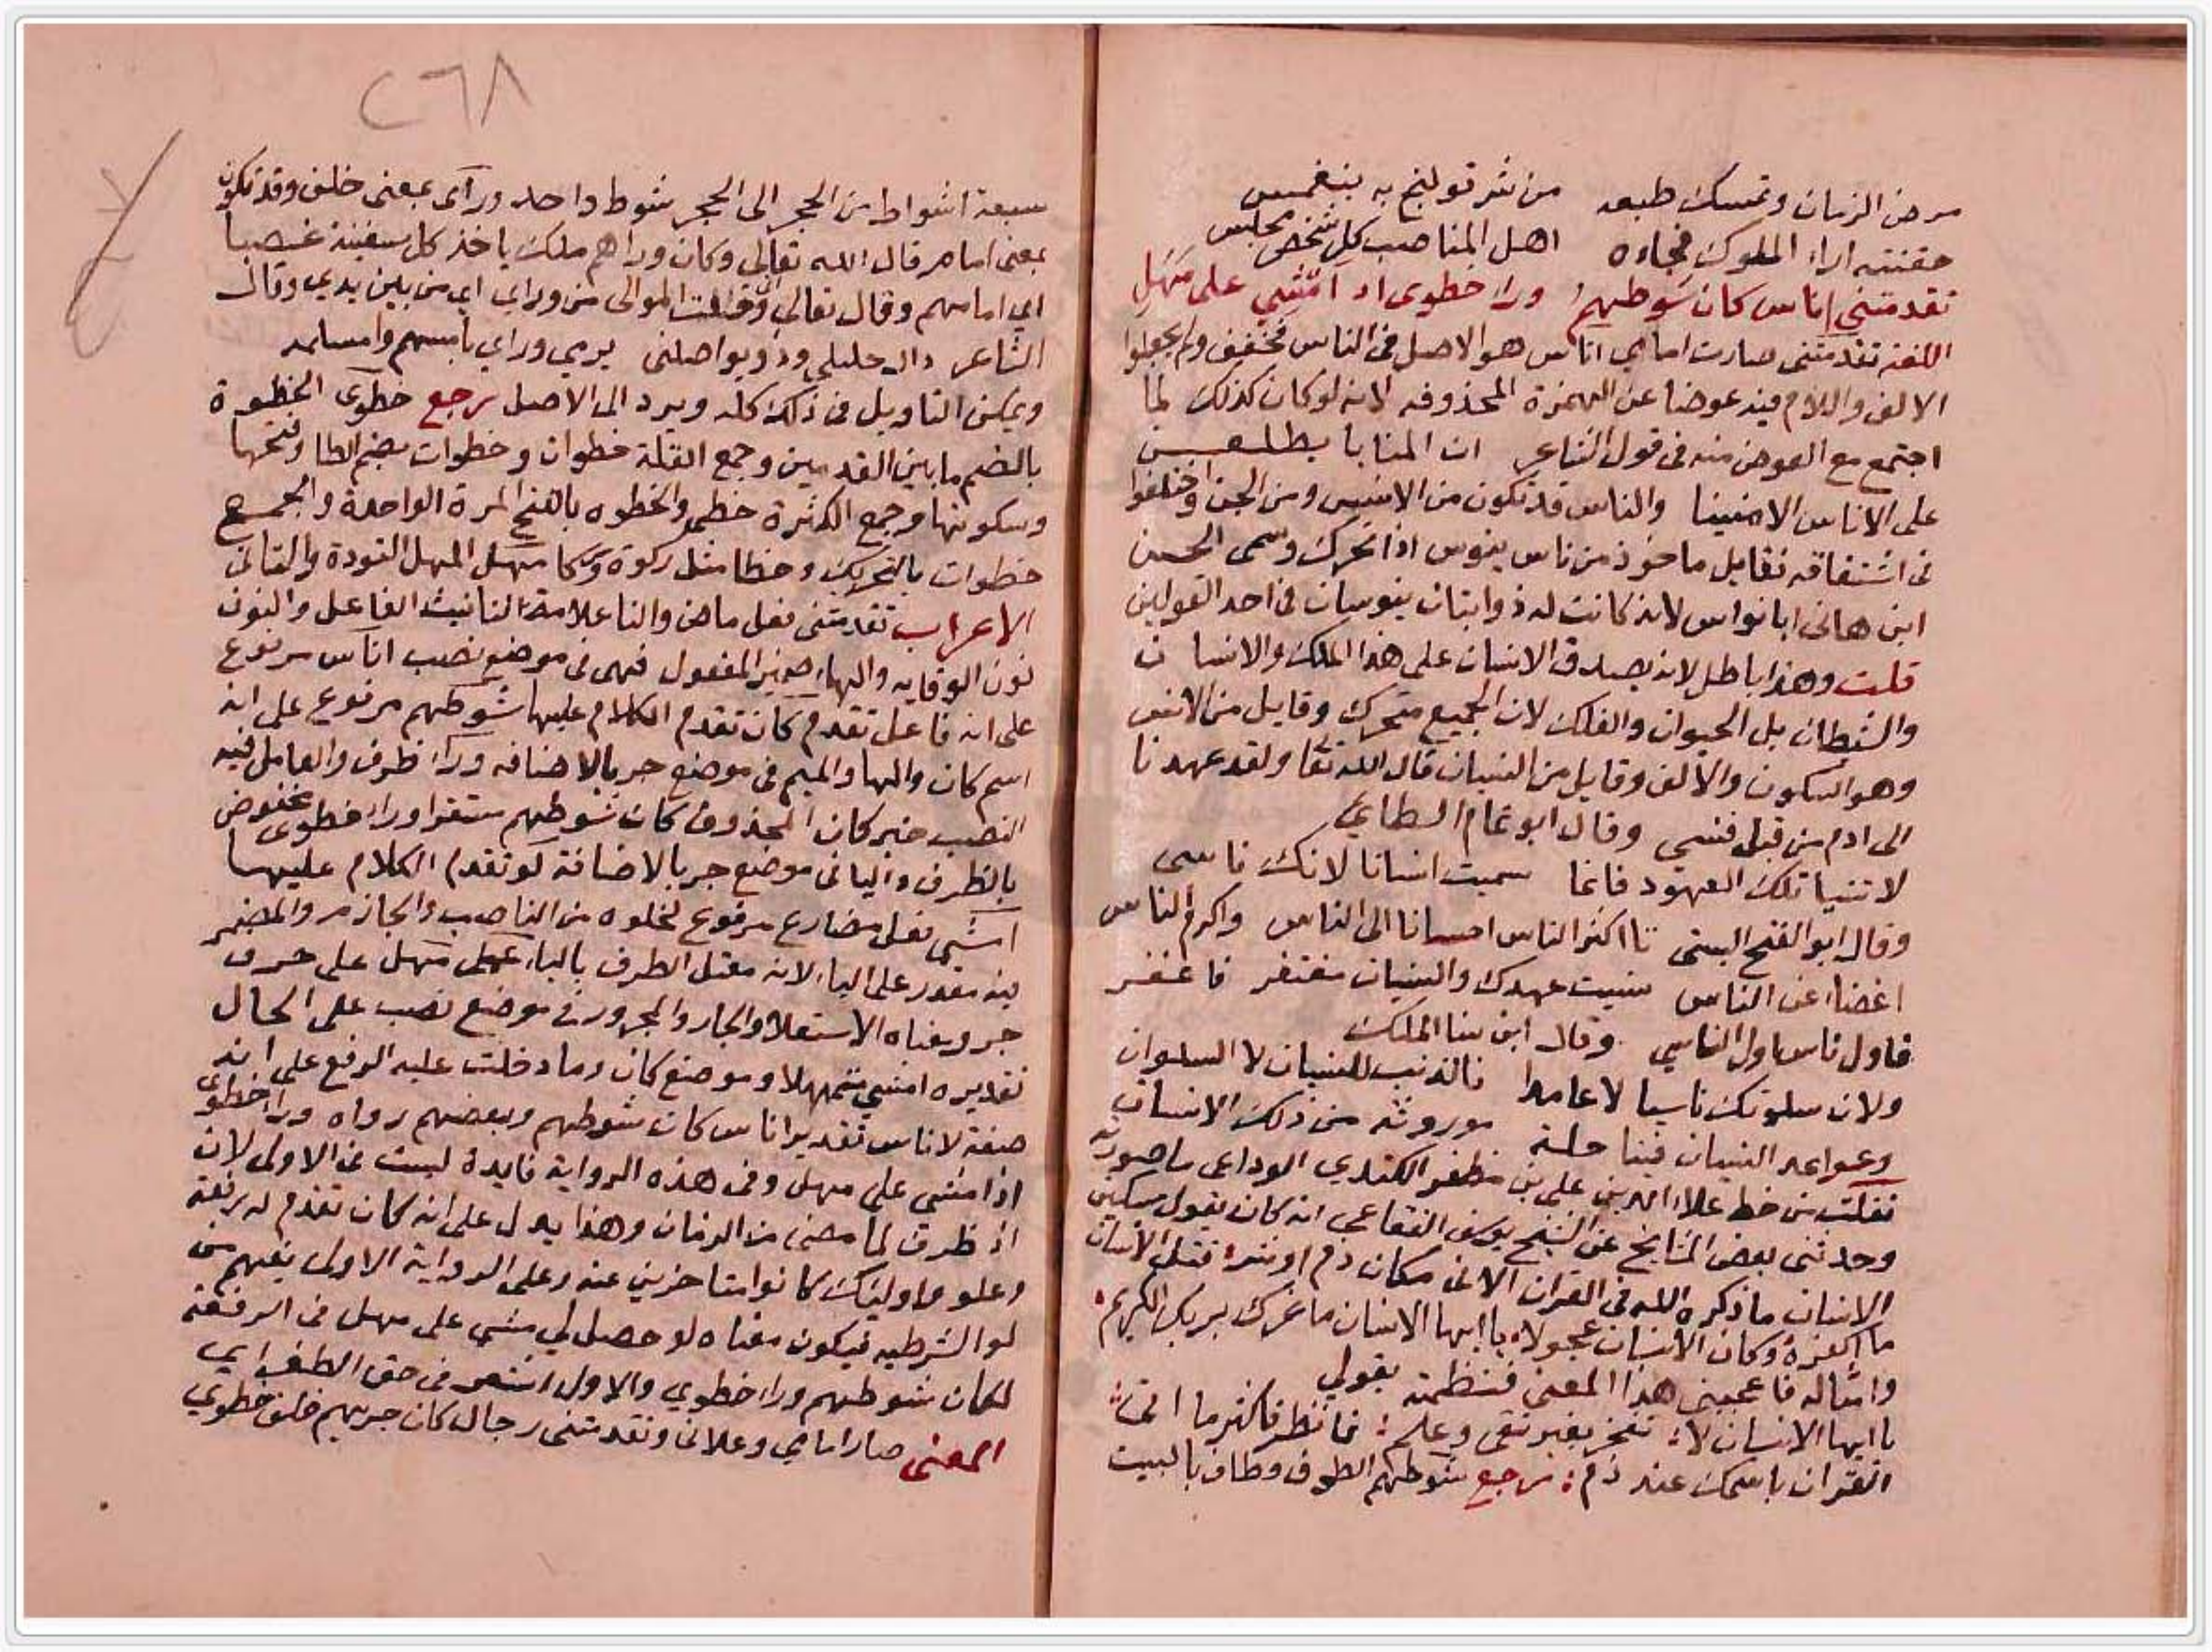 مرض الزمان وتمسك طبعه من شر قولنج به ينغمس
حقنته اراء الملوك فجاءه اهل المناصب كل شخص مجلس
تقدمتني اناس كان شوطهم وراء خطوي اذ امشي على مهل
اللغة تقدمتني صارت امامي اناس هو الاصل في الناس فخفف ولم يجعلوا
الالف واللام فيه عوضا عن الهمزة المحذوفه لانه لو كان كذلك لما
اجتمع مع العوض منه في قول الشاعر ان المنايا يطلعن
على الاناس الامنينا والناس قد تكون من الانس ومن الجن واختلفوا
في اشتقاقه فقايل ماخوذ من ناس ينوس اذا تحرك وسمى الحسن
ابن هاني ابا نواس لانه كانت له ذوابتان ينوسان في احد القولين
قلت وهذا باطل لانه يصدق الانسان على هذا الملك والانسان
والشيطان بل الحيوان والفلك لان الجميع متحرك وقايل من الانس
وهو السكون والالف وقايل من النسيان قال الله تعا ولقد عهدنا
الى ادم من قبل فنسي وقال ابو تمام الطاي
لا تنسيا تلك العهود فانما سميت انسانا لانك ناسي
وقال ابو الفتح البستي يا اكثر الناس احسانا الى الناس واكرم الناس
اغضاء عن الناس نسيت عهدك والنسيان مغتفر فاغفر
فاول ناس اول الناسي وقال ابن سنا الملك
ولان سلوتك ناسيا لا عامدا فالذنب للنسيان لا السلوان
وعوايد النسيان فينا جلة موروثه من ذلك الانسان
نقلت من خط علاء الدين علي بن مظفر الكندي الوداعي ما صورته
وحدثني بعض المشايخ عن الشيخ يوسف الفقاعي انه كان يقول مسكين
الانسان ما ذكره الله في القران الا في مكان ذم او شر قتل الانسان
ما اكفره وكان الانسان عجولا يا ايها الانسان ما غرك بربك الكريم
وامثاله فاعجبني هذا المعنى فنظمته بقولي
يا ايها الانسان لا تفخر بغير تقى وعلم فانظر فاكثر ما اتى
القران باسمك عند ذم رجع شوطهم الطوف وطاف بالبيت
٢٦٨
سبعة اشواط من الحجر الى الحجر شوط واحد وراى بمعنى خلف وقد تكون
بمعنى امام قال الله تعالى وكان وراهم ملك ياخذ كل سفينة غصبا
اي امامهم وقال تعالى وخفت الموالى من وراى اي من بين يدي وقال
الشاعر ذاك خليلي وذو يواصلني يرمي وراي بامسهم وامسلمه
ويمكن التاويل في ذلك كله ويرد الى الاصل رجع خطوى الخطوة
بالضم ما بين القدمين وجمع القلة خطوات وخطوات بضم الطا وفتحها
وسكونها وجمع الكثرة خطى والخطوه بالفتح المرة الواحدة والجمع
خطوات بالتحريك وخطا مثل ركوة وركا مهل المهل التودة والتانى
الاعراب تقدمتني فعل ماض والتا علامة التانيث الفاعل والنون
نون الوقايه واليا ضمير المفعول فهي في موضع نصب اناس مرفوع
على انه فاعل تقدم كان تقدم الكلام عليها شوطهم مرفوع على انه
اسم كان والها والميم في موضع جر بالاضافه وراء ظرف والعامل فيه
النصب خبر كان المحذوف كان شوطهم مستقرا وراء خطوى مخفوض
بالظرف واليا في موضع جر بالاضافة لو تقدم الكلام عليها
امشي فعل مضارع مرفوع لخلوه من الناصب والجازم والمضمر
فيه مقدر على اليا لانه معتل الطرف بالياء على مهل على حرف
جر ومعناه الاستعلا والجار والمجرور في موضع نصب على الحال
تقديره امشي متمهلا وموضع كان وما دخلت عليه الرفع على انه
صفة لاناس تقديره اناس كان شوطهم وبعضهم رواه وراء خطوى
اذ امشي على مهل وفي هذه الرواية فايدة ليست في الاولى لان
اذ ظرف لما مضى من الزمان وهذا يدل على انه كان تقدم له رفعة
وعلو واوليك كانوا متاخرين عنه وعلى الرواية الاولى يفهم من
لو الشرطيه فيكون معناه لو حصل لي مشي على مهل في الرفعة
لكان شوطهم وراء خطوي والاول اشعر في حق الطغراي
المعنى صار امامي وعلاني وتقدمتني رجال كان جريهم خلف خطوي